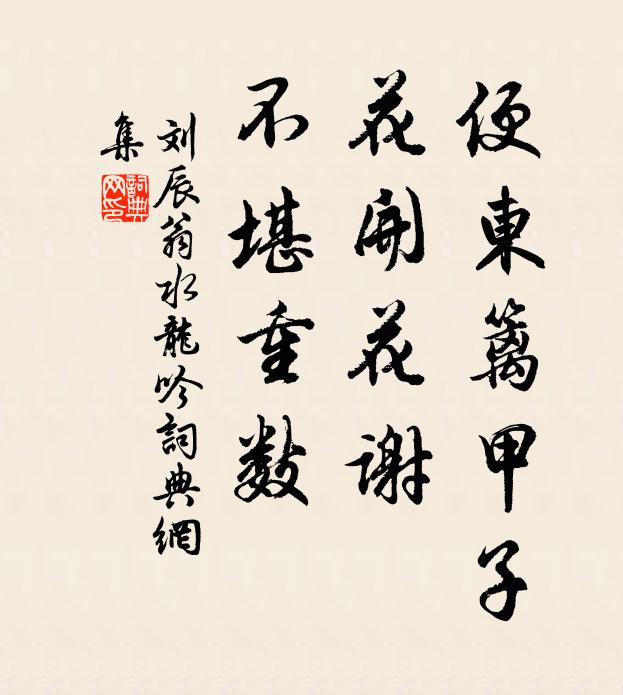 便東籬甲子
花開花謝
不堪重数
刘辰翁水龍吟詞典網
集
詞典網印